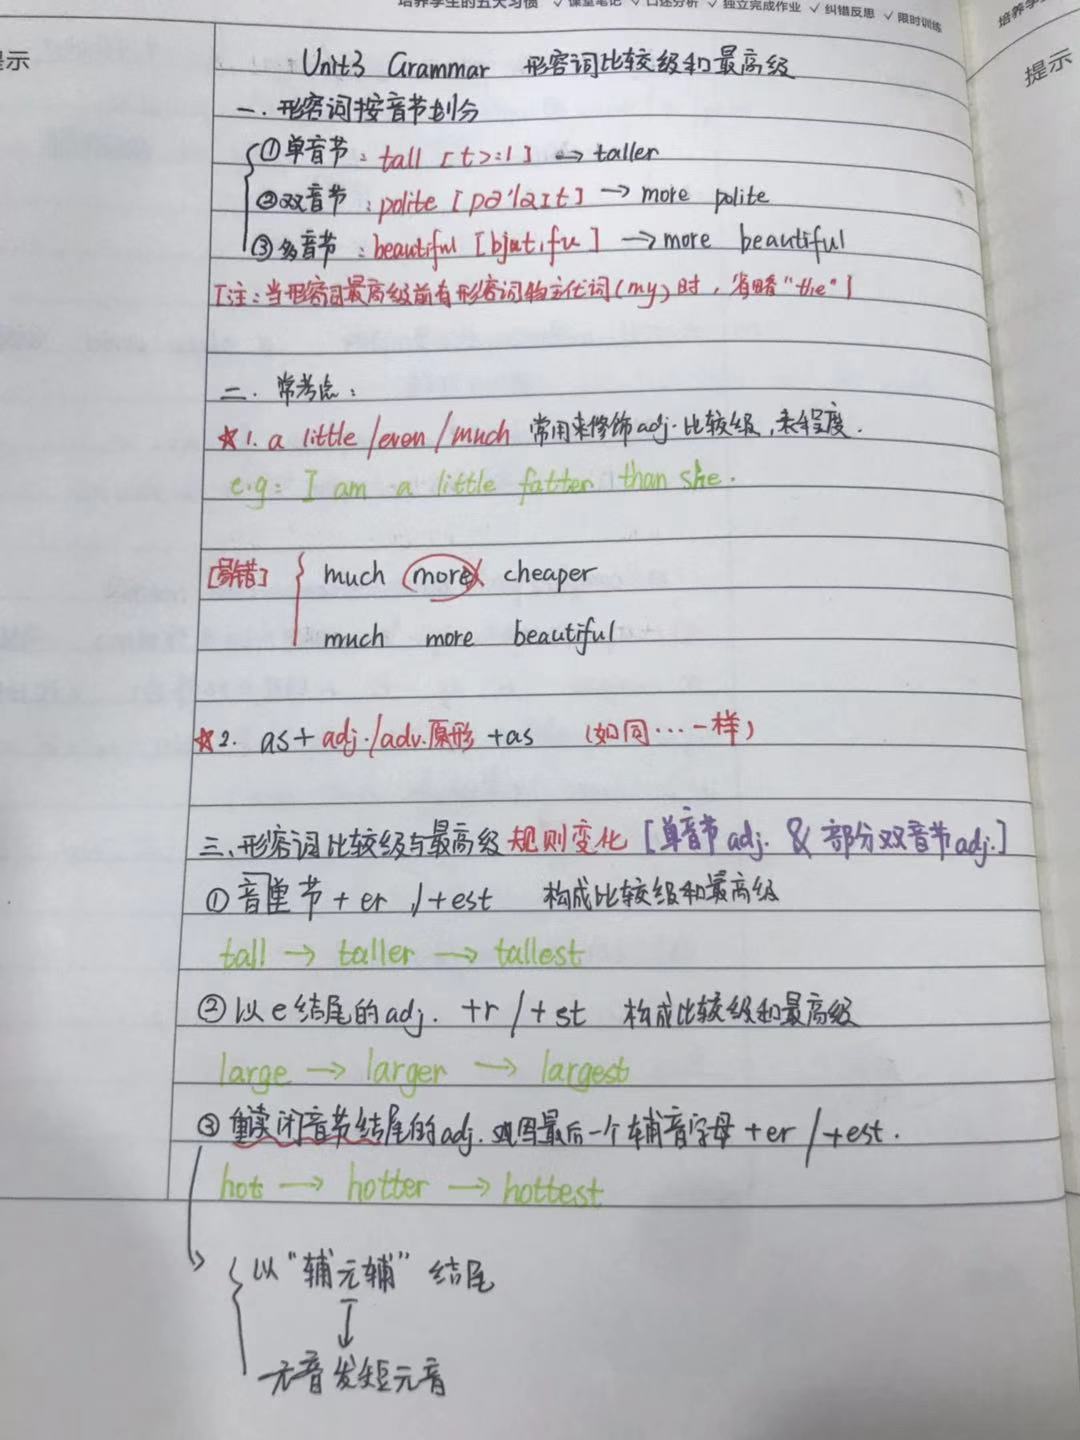 培养学生的五大习惯 ✓课堂笔记 ✓口述分析 ✓独立完成作业 ✓纠错反思 ✓限时训练
提示
提示
Unit3 Grammar 形容词比较级和最高级
一. 形容词按音节划分
①单音节: tall [tɔ:l] → taller
②双音节: polite [pə'laɪt] → more polite
③多音节: beautiful [bjutɪfu] → more beautiful
[注:当形容词最高级前有形容词物主代词(my)时,省略"the"]
二. 常考点:
☆1. a little/even/much 常用来修饰adj.比较级,表程度.
e.g: I am a little fatter than she.
[易错] much more cheaper
much more beautiful
☆2. as+adj./adv.原形+as (如同…一样)
三、形容词比较级与最高级规则变化 [单音节adj. & 部分双音节adj.]
①音节+er /+est 构成比较级和最高级
tall → taller → tallest
②以e结尾的adj. +r/+st 构成比较级和最高级
large → larger → largest
③重读闭音节结尾的adj. 双写最后一个辅音字母+er/+est.
hot → hotter → hottest
以"辅元辅"结尾
↓
元音发短元音